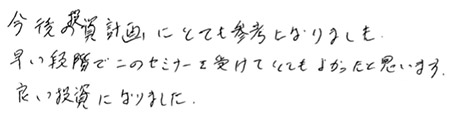 今後の投資計画にとても参考になりました.
早い段階でこのセミナーを受けてとてもよかったと思います.
良い投資になりました.